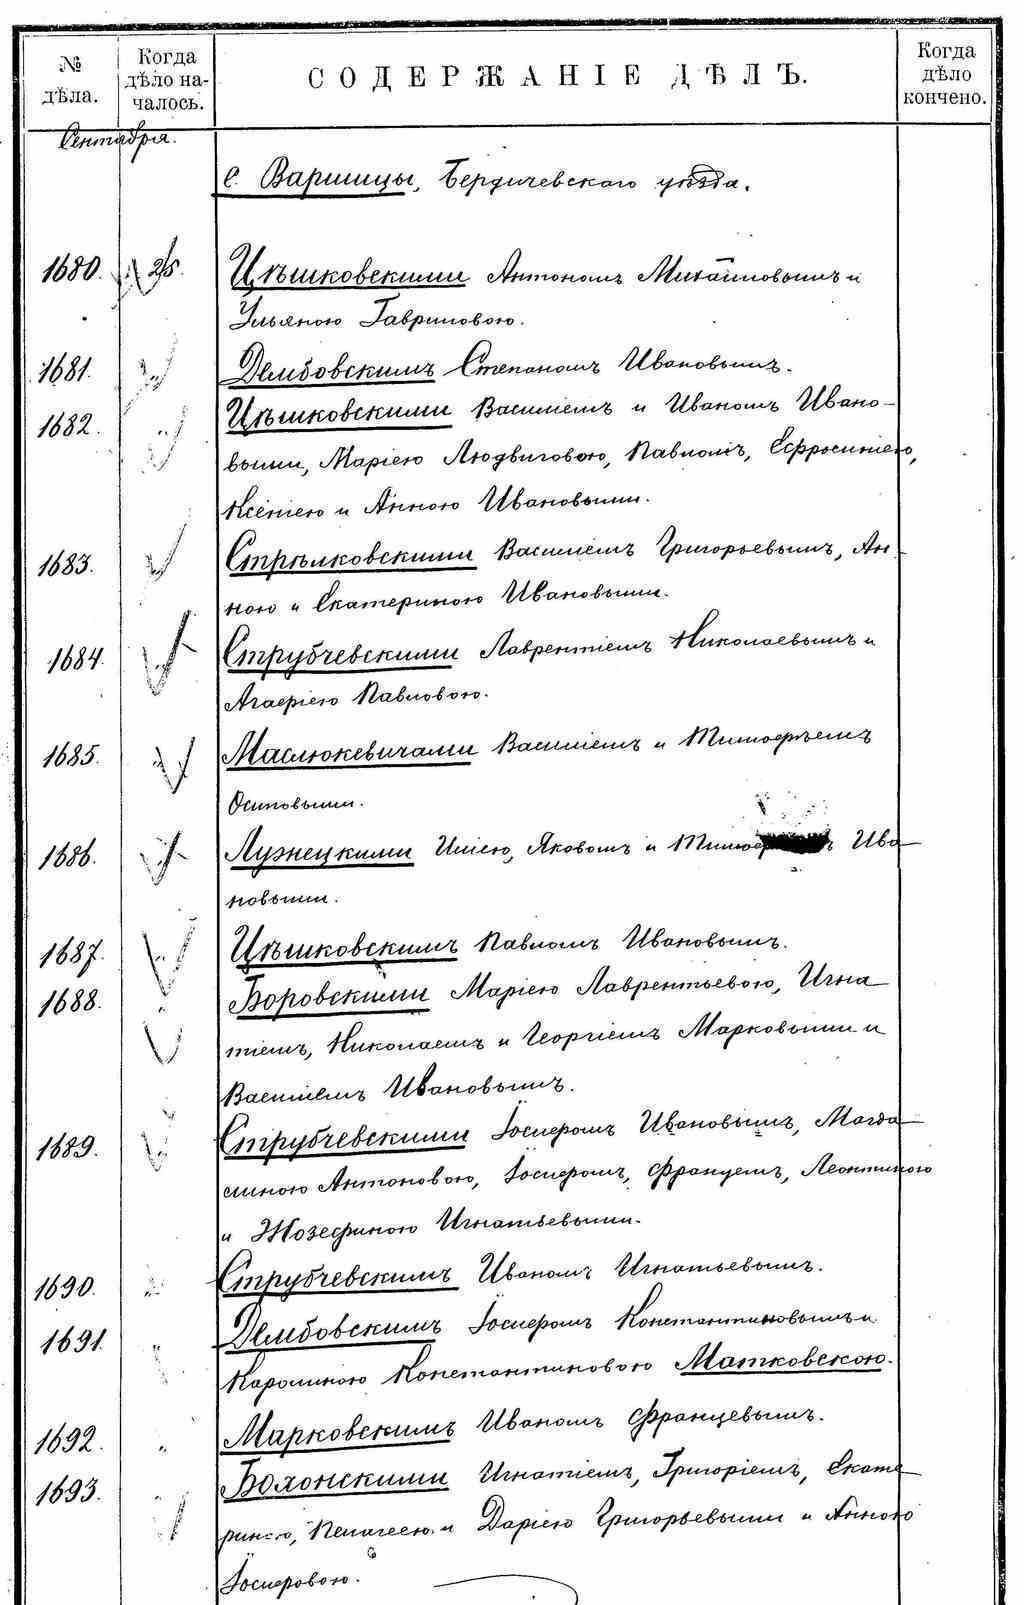 № дѣла.
Когда дѣло на-чалось.
СОДЕРЖАНІЕ ДѢЛЪ.
Когда дѣло кончено.
Сентября.
с. Варшицы, Бердичевскаго уѣзда.
1680. 25. Цѣшковскими Антономъ Михайловымъ и
Ульяною Гавриловою.
1681. „ Дембовскимъ Степаномъ Ивановымъ.
1682. „ Цѣшковскими Василіемъ и Иваномъ Ивано-
выми, Маріею Людвиговою, Павломъ, Ефросиніею,
Ксеніею и Анною Ивановыми.
1683. „ Стрѣлковскими Василіемъ Григорьевымъ, Ан-
ною и Екатериною Ивановыми.
1684. „ Струбчевскими Лаврентіемъ Николаевымъ и
Агафіею Павловою.
1685. „ Маслюкевичами Василіемъ и Тимофѣемъ
Осиповыми.
1686. „ Лузнецкими Иліею, Яковомъ и Ива-
новыми.
1687. „ Цѣшковскимъ Павломъ Ивановымъ.
1688. „ Боровскими Маріею Лаврентьевою, Игна-
тіемъ, Николаемъ и Георгіемъ Марковыми и
Василіемъ Ивановымъ.
1689. „ Струбчевскими Іосифомъ Ивановымъ, Магда-
линою Антоновою, Іосифомъ, Францемъ, Леонтиною
и Жозефиною Игнатьевыми.
1690. „ Струбчевскимъ Иваномъ Игнатьевымъ.
1691. „ Дембовскимъ Іосифомъ Константиновымъ и
Каролиною Константиновою Матковскою.
1692. „ Марковскимъ Иваномъ Францевымъ.
1693. „ Болонскими Игнатіемъ, Григоріемъ, Екате-
риною, Пелагеею и Даріею Григорьевыми и Анною
Іосифовою.